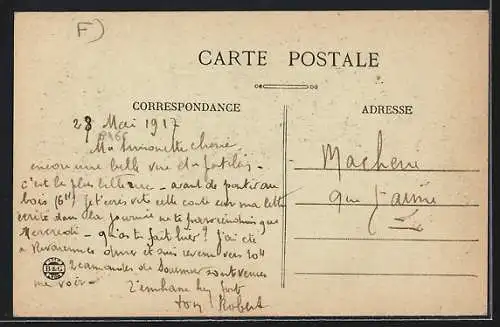 F)
CARTE POSTALE
CORRESPONDANCE
ADRESSE
28 Mai 1917
Ma Simonette cherie
encore une belle vue de
c'est la plus belle rue - avant de partir au
bois (6H) je t'ecris vite cette carte car ma lettre
ecrite dans la journée ne te parviendrais que
Mercredi - qu'as tu fait hier ? j'ai été
a diner et suis revenu vers 10H
2 camarades de sont venus
me voir -
t'embrasse bien fort
ton Robert
B&G
Macherie
que j'aime